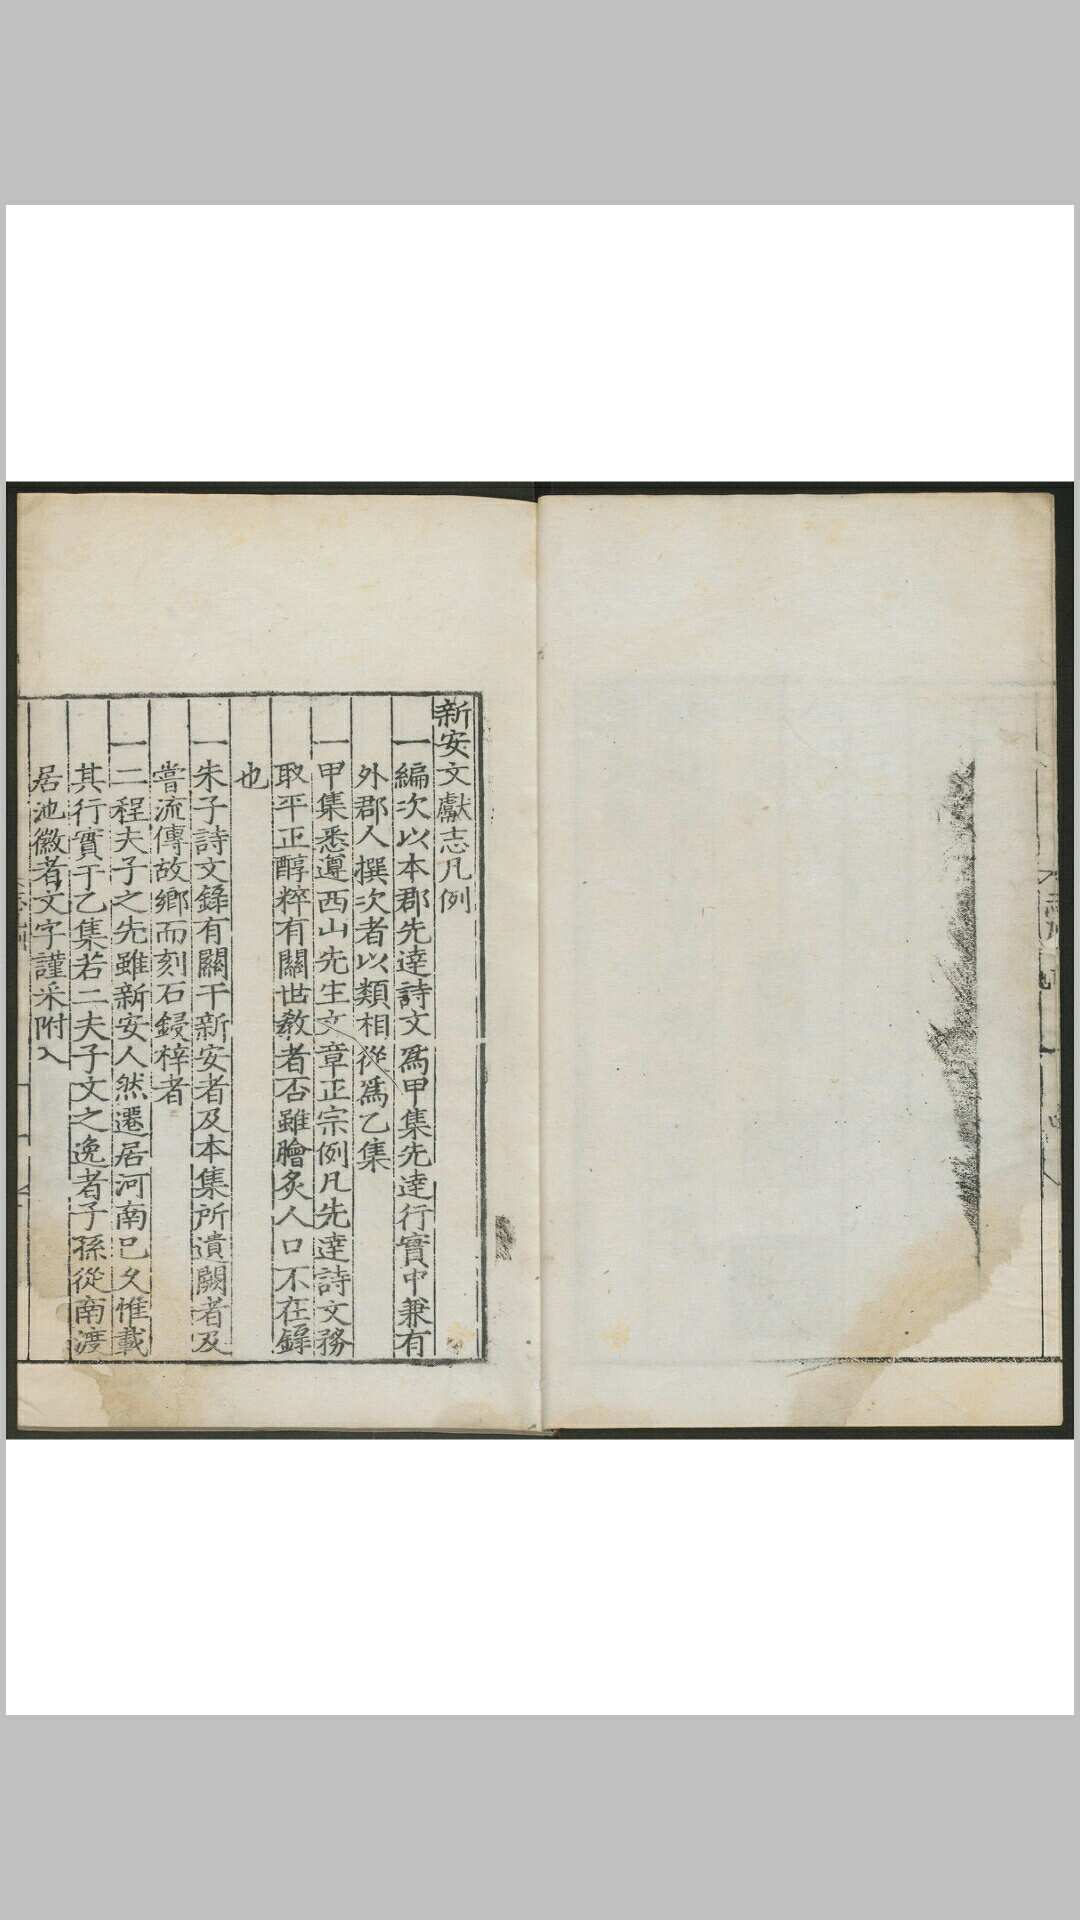 新安文獻志凡例
一編次以本郡先達詩文爲甲集先達行實中兼有
外郡人撰次者以類相從爲乙集
一甲集悉遵西山先生文章正宗例凡先達詩文務
取平正醇粹有關世敎者否雖膾炙人口不在録
也
一朱子詩文錄有關于新安者及本集所遺闕者及
嘗流傳故鄉而刻石鋟梓者
一二程夫子之先雖新安人然遷居河南已久惟載
其行實于乙集若二夫子文之逸者子孫從南渡
居池徽者文字謹采附入